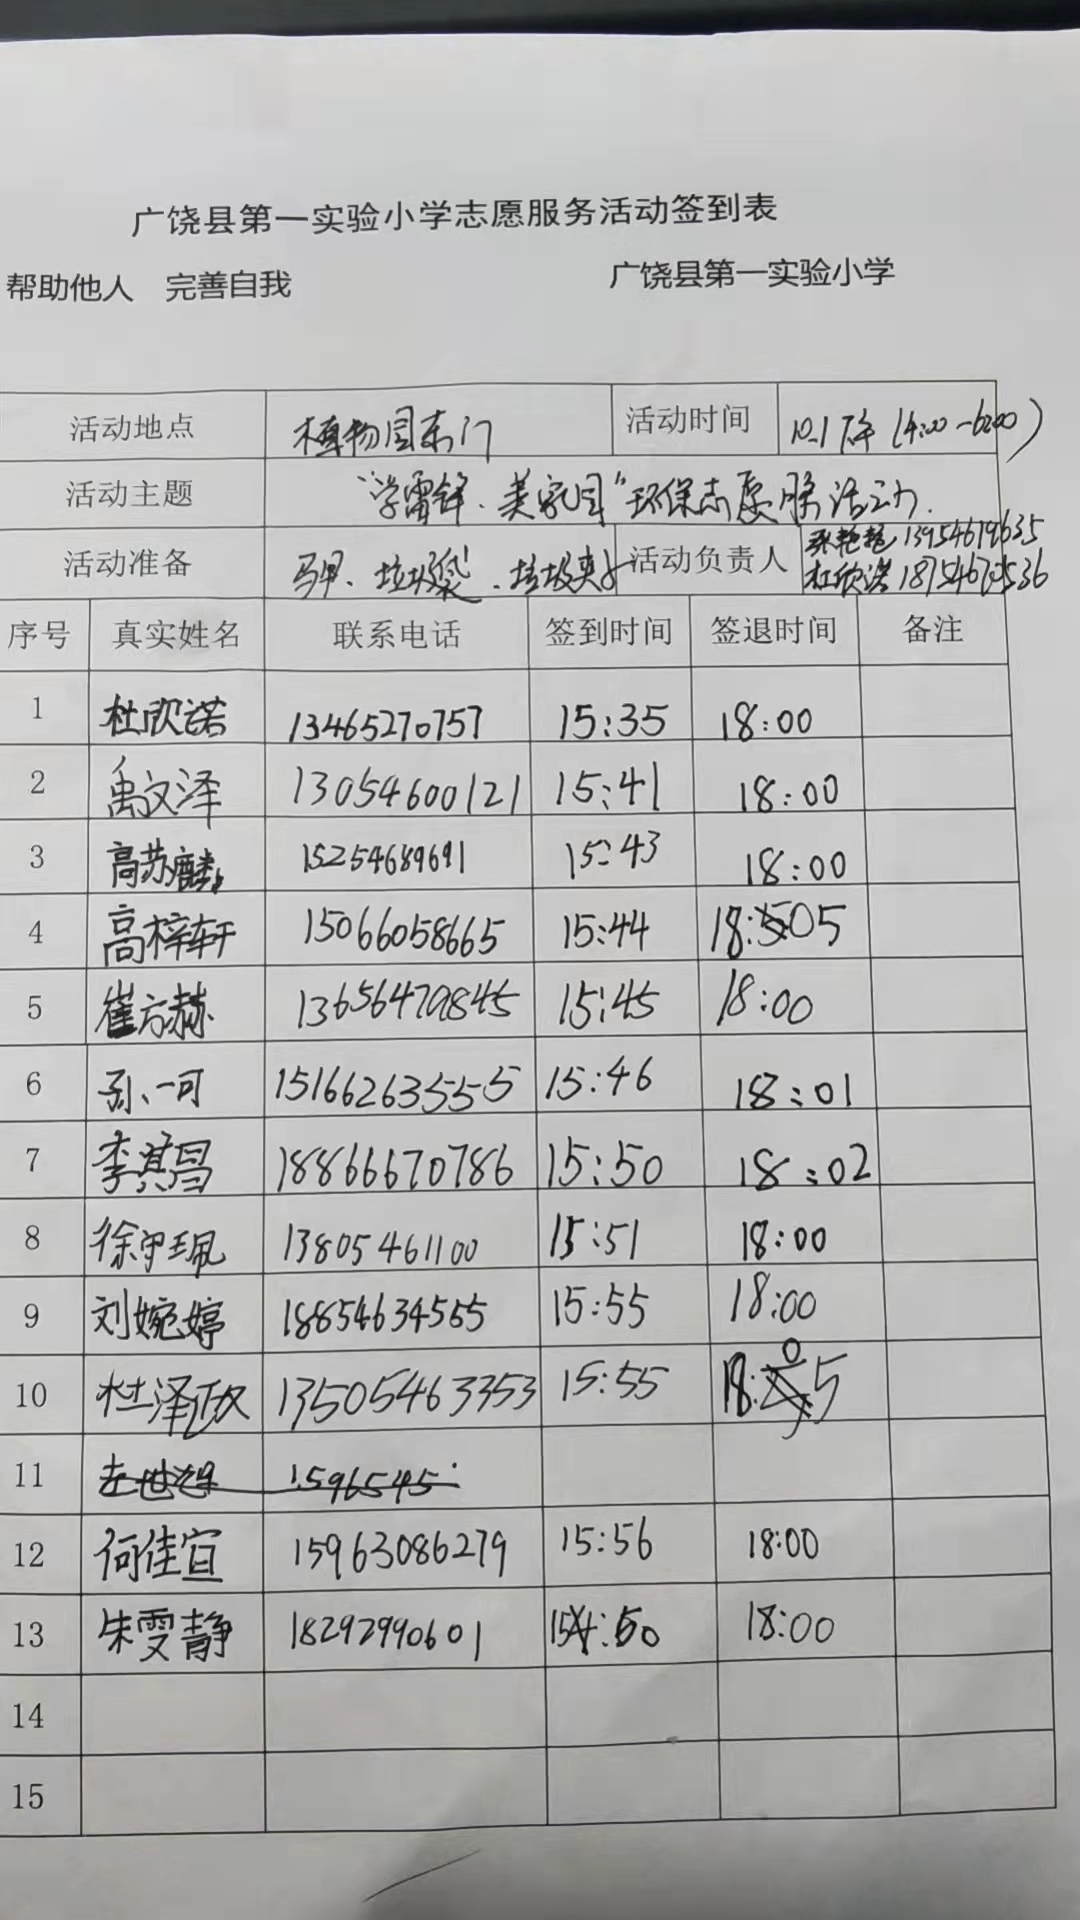 广饶县第一实验小学志愿服务活动签到表
帮助他人 完善自我 广饶县第一实验小学
活动地点 植物园东门 活动时间 10.1下午(4:00-6:00)
活动主题 “学雷锋.美家园”环保志愿服活动.
活动准备 马甲、垃圾袋、垃圾夹子 活动负责人
杜欣诺
序号 真实姓名 联系电话 签到时间 签退时间 备注
1 杜欣诺 13465270757 15:35 18:00
2 禹文泽 13054600121 15:41 18:00
3 高苏麟 15254689691 15:43 18:00
4 高梓轩 15066058665 15:44 18:05
5 崔方赫 13656479845 15:45 18:00
6 孙一可 15166263555 15:46 18:01
7 李其昌 18866670786 15:50 18:02
8 徐守珮 13805461100 15:51 18:00
9 刘婉婷 18854634555 15:55 18:00
10 杜泽政 13505463353 15:55 18:05
11 1596545
12 何佳宜 15963086279 15:56 18:00
13 朱雯静 18292990601 18:00
14
15